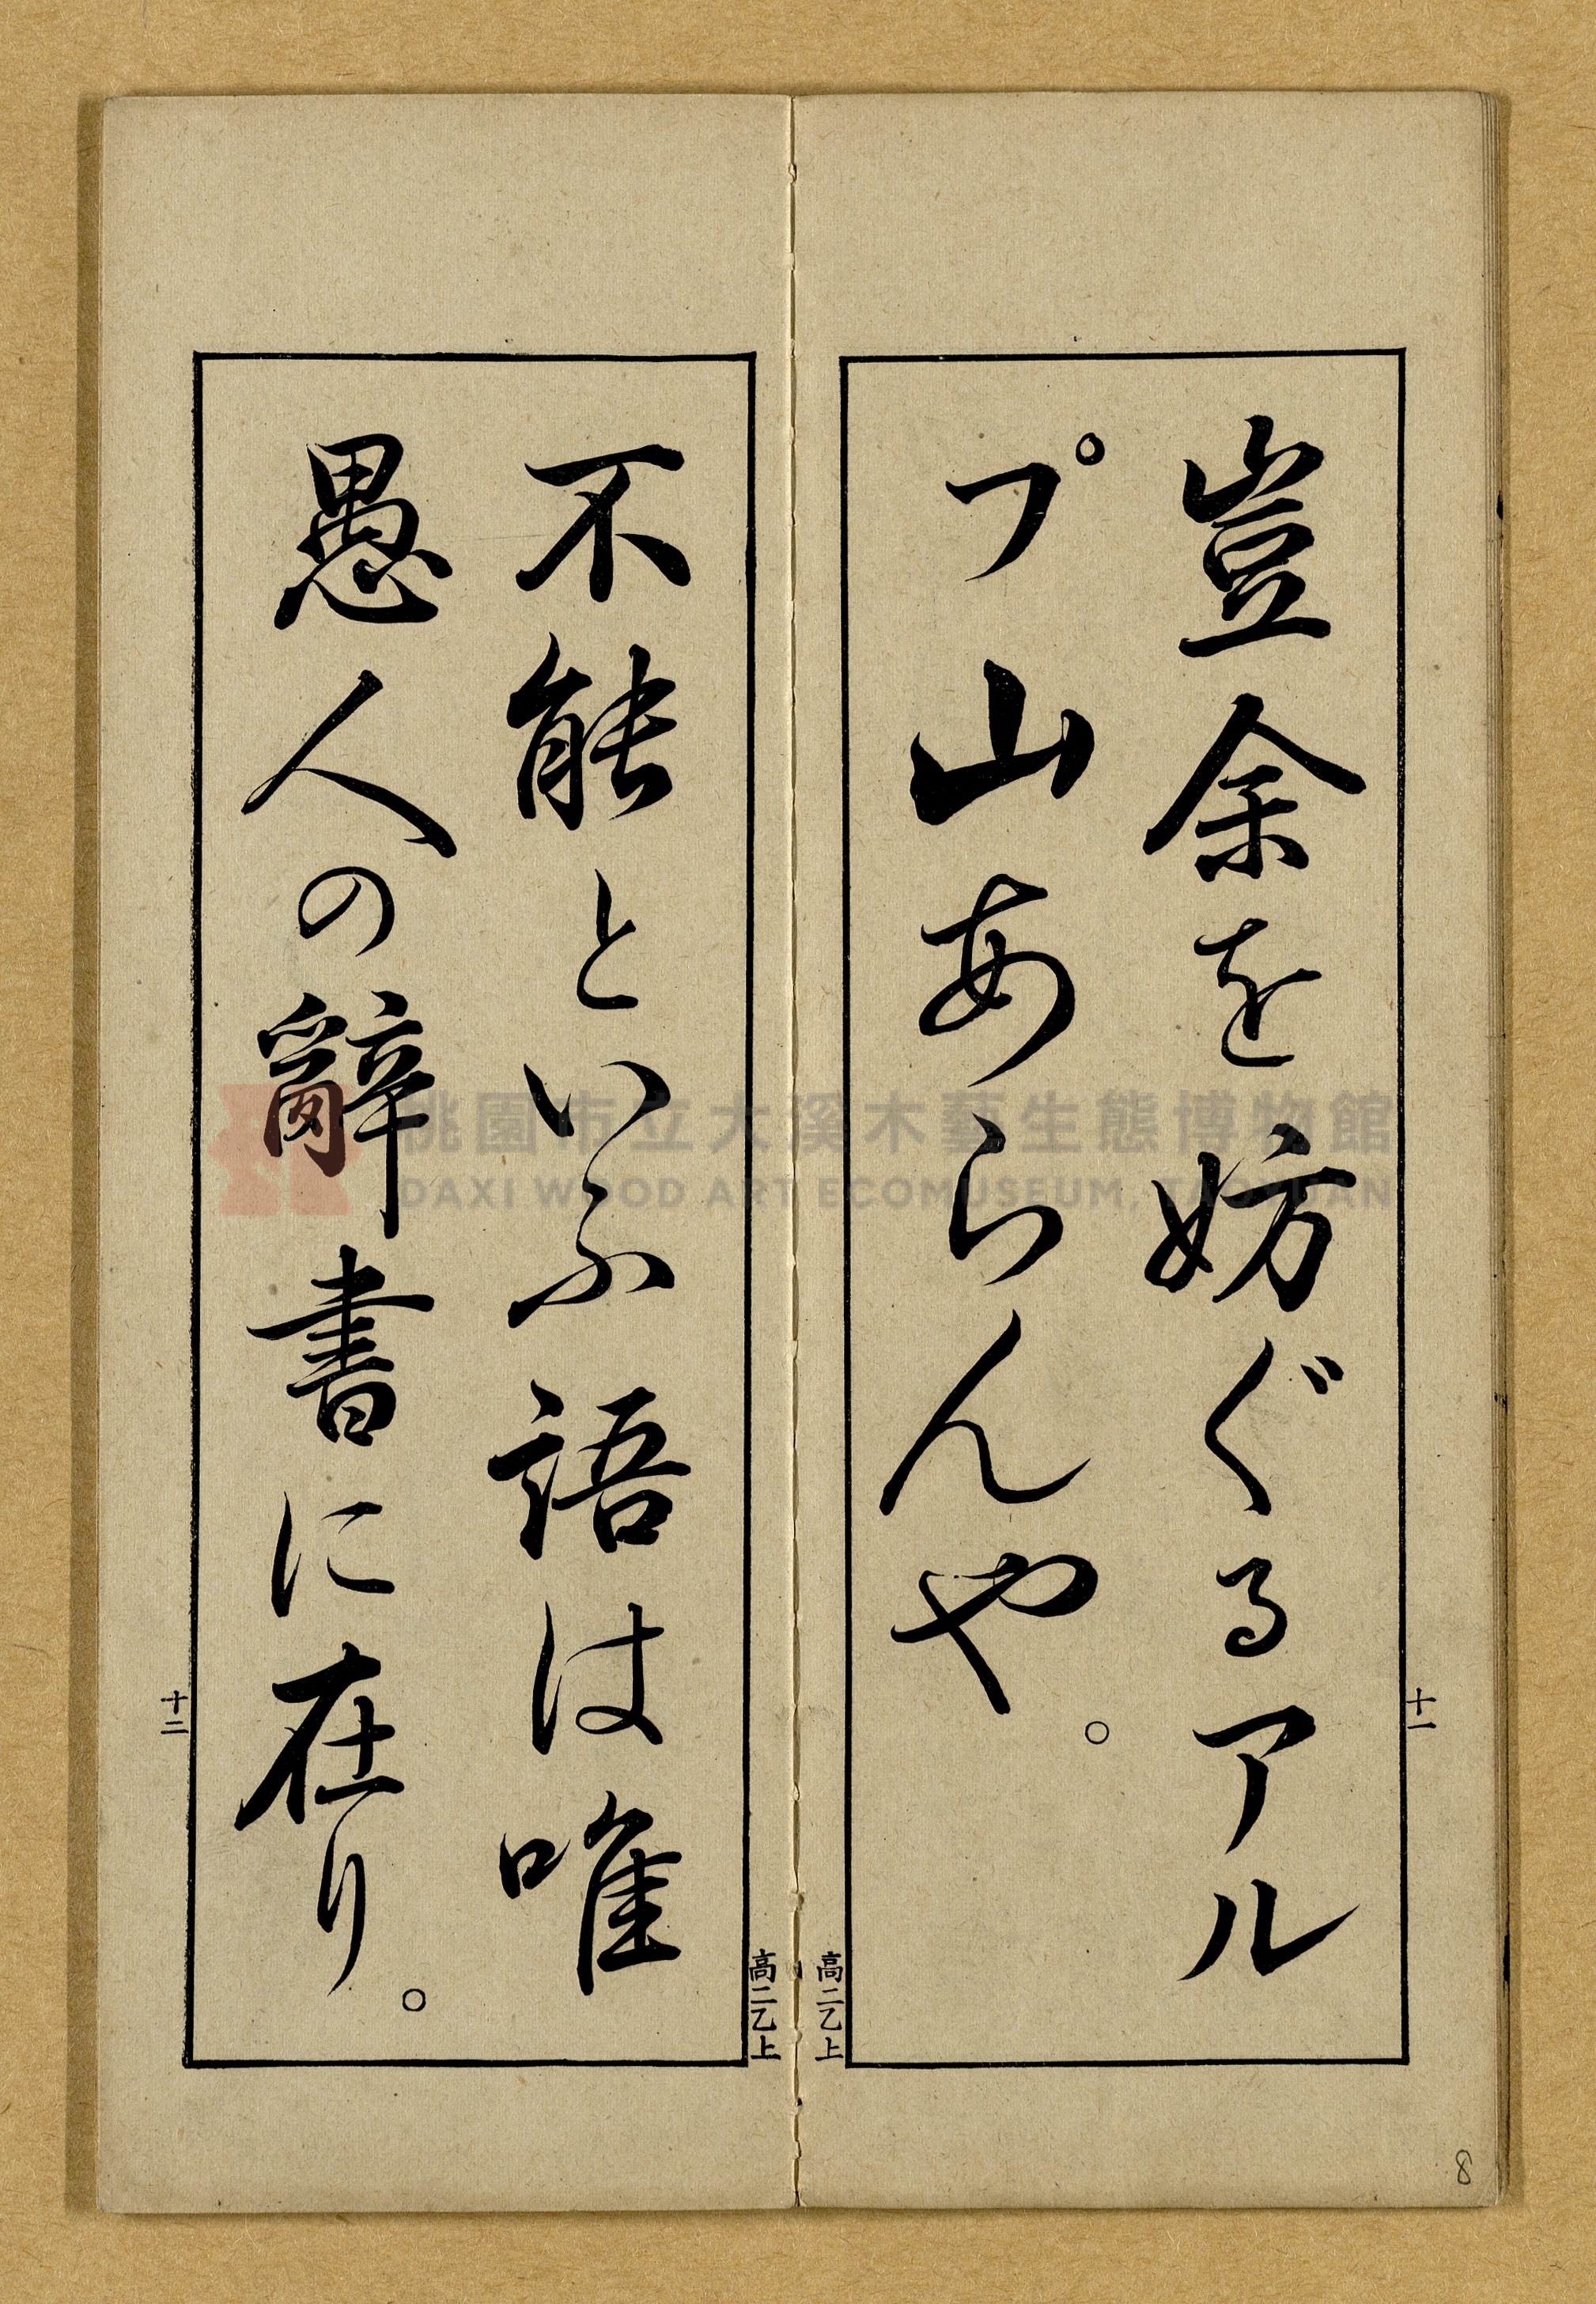 豈余を妨ぐるアル
プ山あらんや。
十一
高二乙上
不能といふ語は唯
愚人の辭書に在り。
高二乙上
十二
桃園市立大溪木藝生態博物館
DAXI WOOD ART ECOMUSEUM, TAOYUAN
8